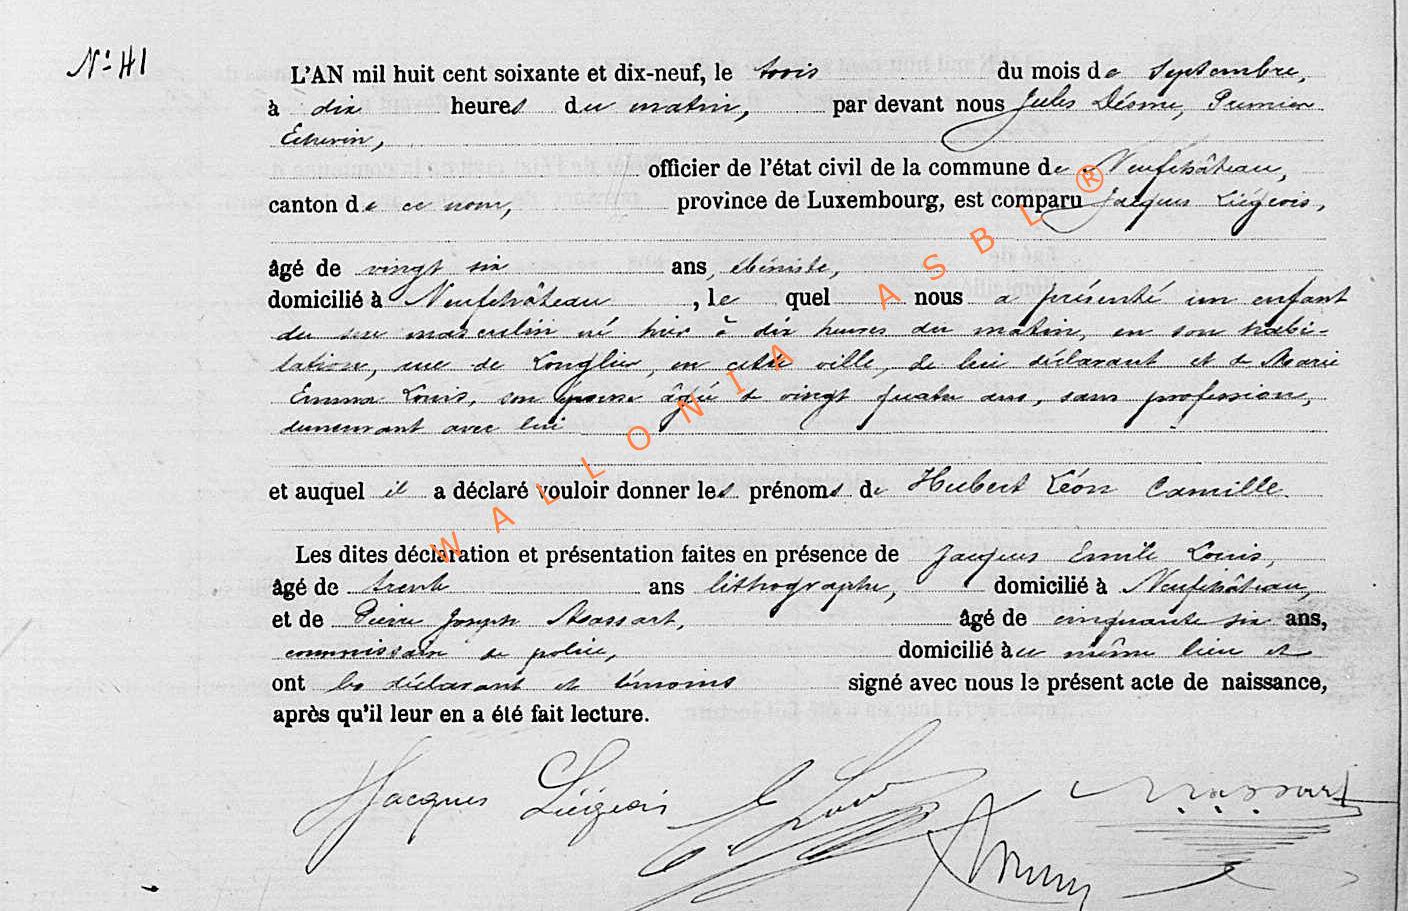 N° 41
L'AN mil huit cent soixante et dix-neuf, le trois du mois de Septembre,
à dix heures du matin, par devant nous Jules Désme, Premier
Echevin,
officier de l'état civil de la commune de Neufchâteau,
canton de ce nom, province de Luxembourg, est comparu Jacques Liégeois,
âgé de vingt six ans, ébéniste,
domicilié à Neufchâteau, lequel nous a présenté un enfant
du sexe masculin né hier à dix heures du matin, en son habi-
tation, rue de Longlier, en cette ville, de lui déclarant et de Marie
Emma Louis, son épouse âgée de vingt quatre ans, sans profession,
demeurant avec lui
et auquel il a déclaré vouloir donner les prénoms de Hubert Léon Camille.
Les dites déclaration et présentation faites en présence de Jacques Emile Louis,
âgé de trente ans lithographe, domicilié à Neufchâteau,
et de Pierre Joseph Massart, âgé de cinquante six ans,
commissaire de police, domicilié au même lieu et
ont les déclarant et témoins signé avec nous le présent acte de naissance,
après qu'il leur en a été fait lecture.
Jacques Liégeois E. Louis Massart
WALLONIA ASBL ®